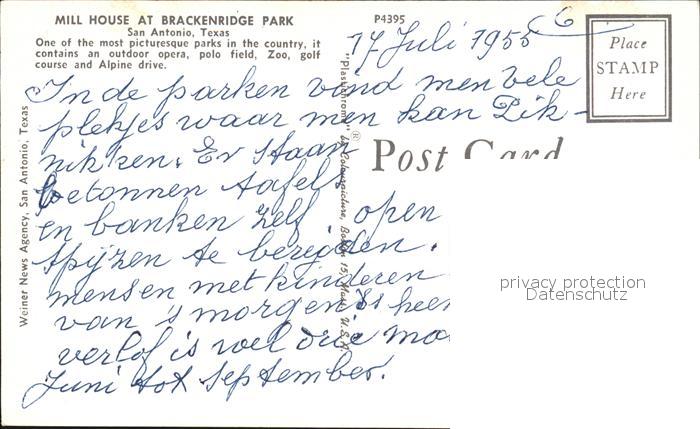 MILL HOUSE AT BRACKENRIDGE PARK
San Antonio, Texas
One of the most picturesque parks in the country, it
contains an outdoor opera, polo field, Zoo, golf
course and Alpine drive.
P4395
6
17 Juli 1955
Place
STAMP
Here
Post Card
Weiner News Agency, San Antonio, Texas
"Plastichrome" ® by Colourpicture, Boston 15, Mass., U.S.A.
In de parken vind men vele
plekjes waar men kan Pik-
nikken. Er staan
betonnen tafels
en banken zelf open
spijzen te bereiden.
mensen met kinderen
van 's morgens heen
verlof is wel drie mo
Juni tot September.
privacy protection
Datenschutz